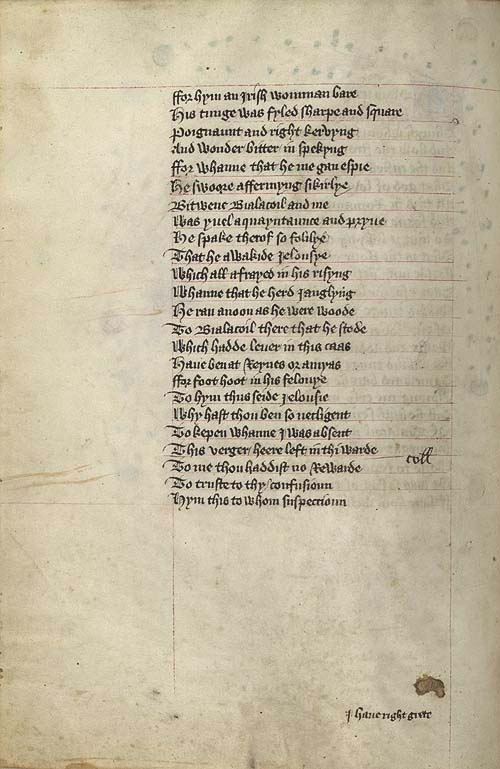 ffor hym an Irish womman bare
His tunge was fyled sharpe and square
Poignaunt and right kervyng
And wonder bitter in spekyng
ffor whanne that he me gan espie
He swoore affermyng sikirlye
Bitwene Bialacoil and me
Was yuel aquayntaunce and pryue
He spake therof so folilye
That he awakide Jelousye
Which all afrayed in his risyng
Whanne that he herd Janglyng
He ran anoon as he were woode
To Bialacoil there that he stode
Which hadde leuer in this caas
Haue ben at Reynes or amyas
ffor foot hoot in his felonye
To hym thus seide Jelousie
Why hast thou ben so necligent
To kepen whanne I was absent
This verger heere left in thi warde
coll
To me thou haddist no Rewarde
To truste to thy confusioun
Hym this to whom suspeccioun
I haue right grete